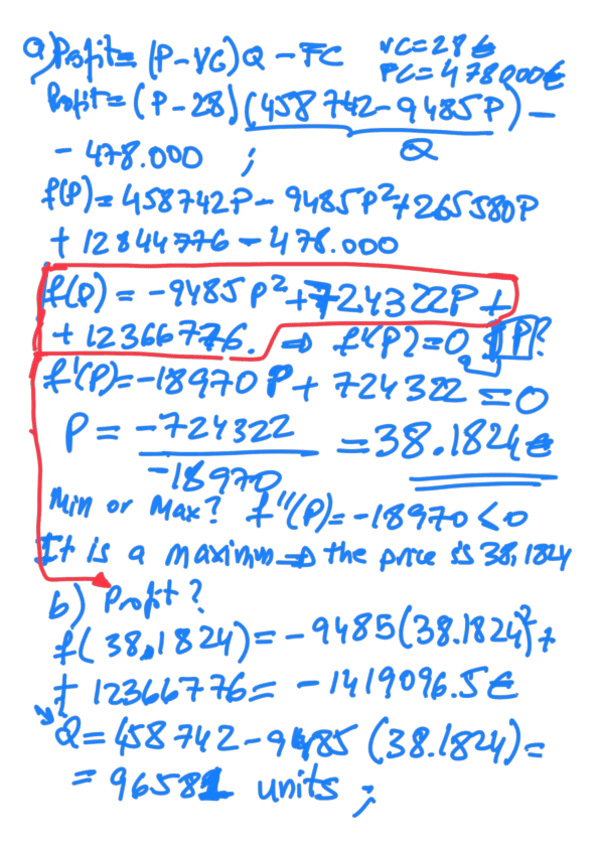 a) Profit = (P-VC)Q - FC VC=28€
FC=478000€
Profit = (P-28)(458742-9485P) -
Q
- 478.000 ;
f(P) = 458742P - 9485P²+265580P
+ 12844776 - 478.000
f(P) = -9485P²+724322P +
+ 12366776. ⇒ f'(P)=0, P?
f'(P)=-18970P + 724322 = 0
P = -724322 / -18970 = 38.1824€
Min or Max? f''(P)=-18970<0
It is a maximum ⇒ the price is 38,1824
b) Profit?
f(38,1824)= -9485(38.1824)²+
+ 12366776= -1419096.5€
Q=458742-9485(38.1824)=
= 96581 units ;